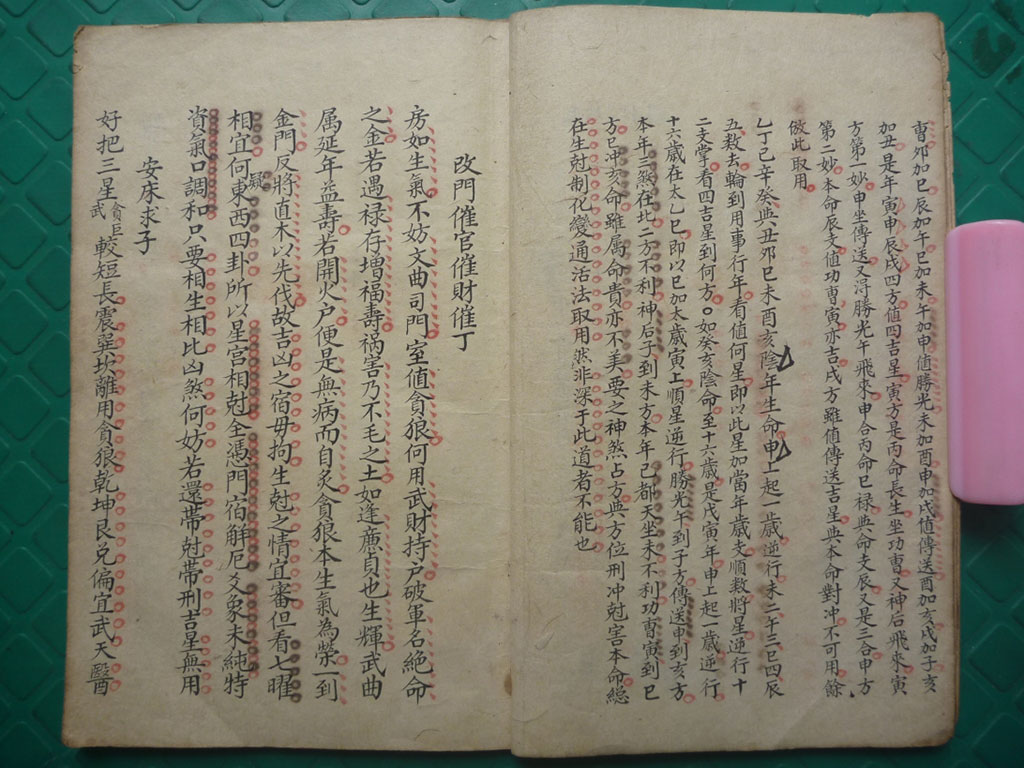 曹夘加巳辰加午巳加未午加申值勝光未加酉申加戌值傳送酉加亥戌加子亥
加丑是年寅申辰戌四方值四吉星寅方是丙命長生坐功曹又神后飛來寅
方第一妙申坐傳送又淂勝光午飛來申合丙命巳禄與命支辰又是三合申方
第二妙本命辰支值功曹寅亦吉戌方雖值傳送吉星與本命對冲不可用餘
倣此取用
乙丁己辛癸與丑夘巳未酉亥陰年生命申上起一歲逆行未二午三巳四辰
五数去輪到用事行年看值何星即以此星加當年歲支順数將星逆行十
二支掌看四吉星到何方○如癸亥陰命至十六歲是戊寅年申上起一歲逆行
十六歲在太乙巳即以巳加太歲寅上順星逆行勝光午到子方傳送申到亥方
本年三煞在北二方不利神后子到未方本年己都天坐未不利功曹寅到巳
方巳冲亥命雖属命貴亦不美要之神煞占方與方位刑冲尅害本命縂
在生尅制化變通活法取用然非深于此道者不能也
改門催官催財催丁
房如生氣不妨文曲司門室值貪狼何用武財持户破軍名絶命
之金若遇禄存增福壽禍害乃不毛之土如逢廉貞也生輝武曲
属延年益壽若開火户便是無病而自炙貪狼本生氣為榮一到
金門反將直木以先伐故吉凶之宿毋拘生尅之情宜審但看七曜
相宜何疑東西四卦所以星宫相尅全憑門宿解厄爻象未純特
資氣口調和只要相生相比凶煞何妨若還帶尅帶刑吉星無用
安床求子
好把三星貪巨武較短長震巽坎離用貪狼乾坤艮兑偏宜武天醫